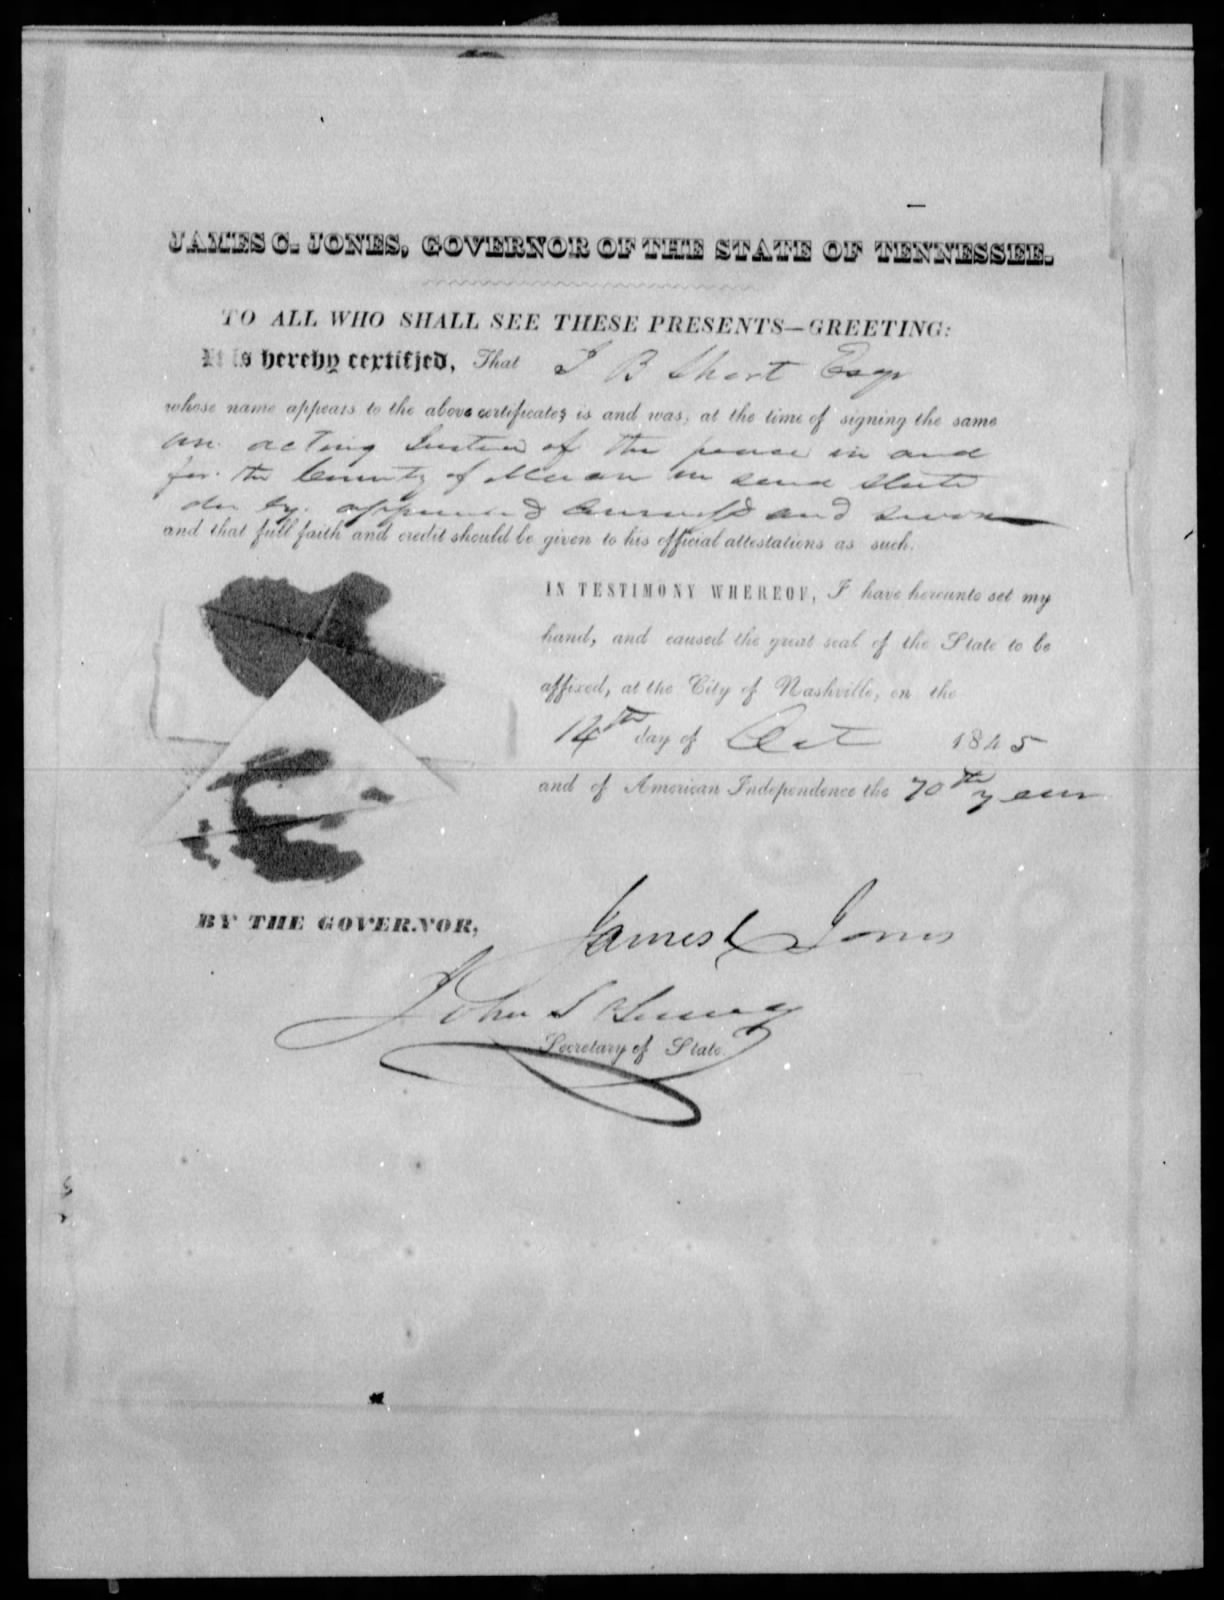 JAMES C. JONES, GOVERNOR OF THE STATE OF TENNESSEE.
TO ALL WHO SHALL SEE THESE PRESENTS—GREETING:
It is hereby certified, That J B Short Esqr
whose name appears to the above certificates is and was, at the time of signing the same
an acting Justice of the peace in and
for the County of Macon in said State
duly appointed Commissd and sworn
and that full faith and credit should be given to his official attestations as such.
IN TESTIMONY WHEREOF, I have hereunto set my
hand, and caused the great seal of the State to be
affixed, at the City of Nashville, on the
14th day of Oct 1845
and of American Independence the 70th year
BY THE GOVERNOR,
James C Jones
John S Young
Secretary of State.